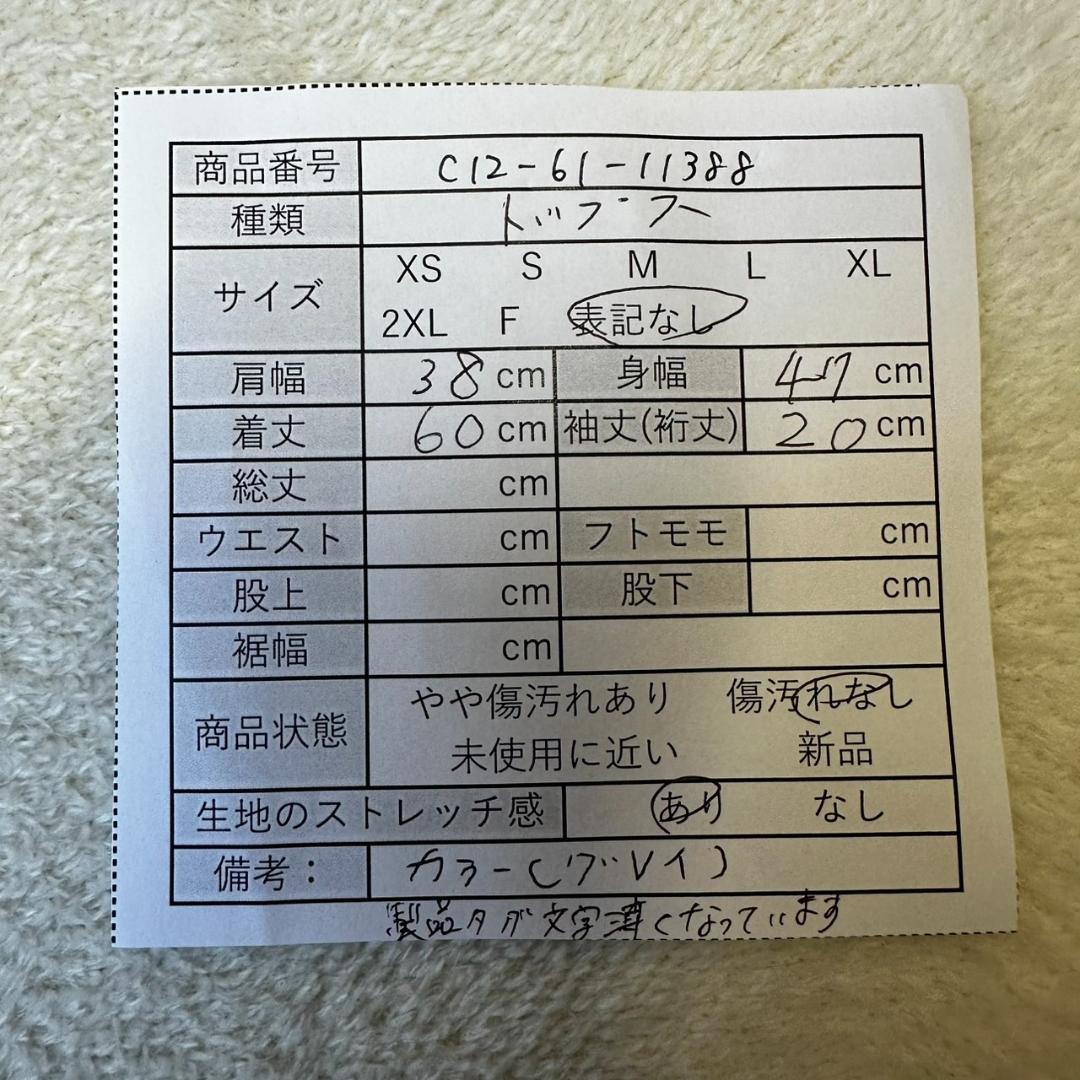 商品番号 C12-61-11388
種類 トップス
サイズ XS S M L XL
2XL F 表記なし
肩幅 38 cm 身幅 47 cm
着丈 60 cm 袖丈(裄丈) 20 cm
総丈 cm
ウエスト cm フトモモ cm
股上 cm 股下 cm
裾幅 cm
商品状態 やや傷汚れあり 傷汚れなし
未使用に近い 新品
生地のストレッチ感 あり なし
備考： カラー(グレイ)
製品タグ文字薄くなっています